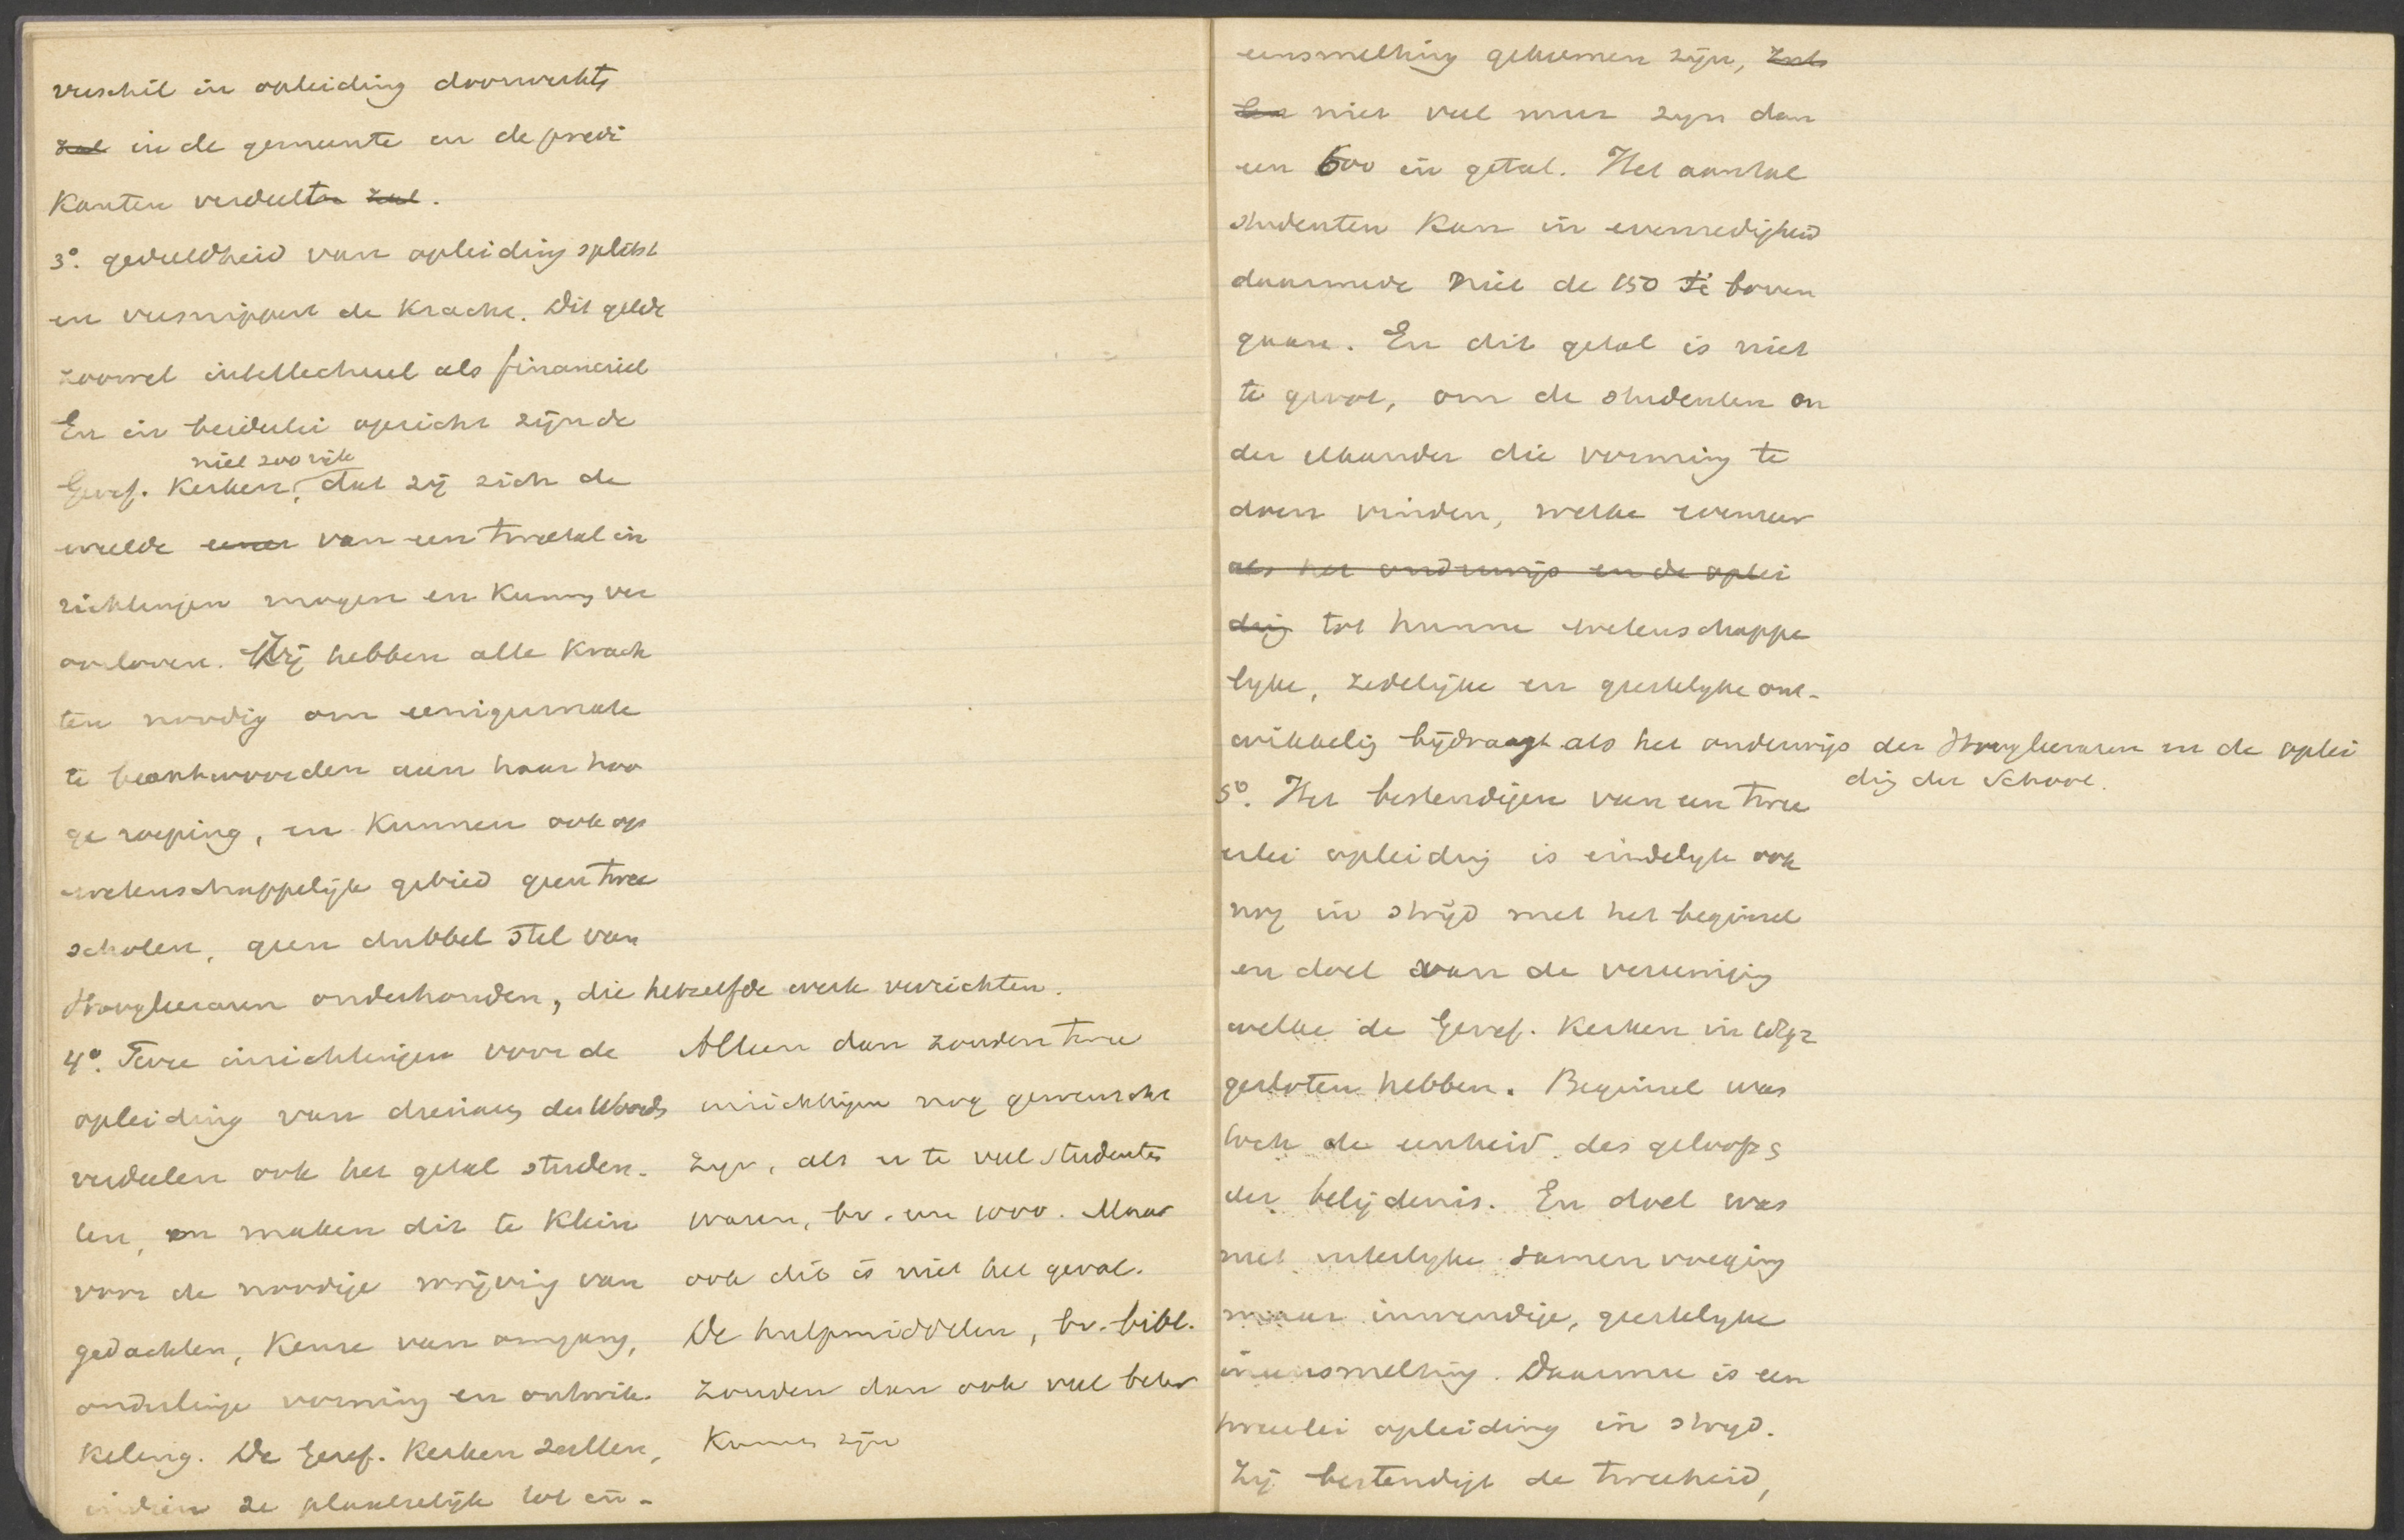 verschil in opleiding doorwerkt
zal in de gemeente en de predi
kanten verdeelt zal.
3º. gedeeldheid van opleiding splitst
en versnippert de kracht. Dit geldt
zoowel intellectueel als financieel
En in beiderlei opzicht zijn de
niet zoo rijk
Geref. Kerken, dat zij zich de
weelde van een tweetal in
richtingen mogen en kunnen ver
oorloven. Zij hebben alle krach
ten noodig om eenigermate
te beantwoorden aan haar hoo
ge roeping, en kunnen ook op
wetenschappelijk gebied geen twee
scholen, geen dubbel stel van
Hoogleeraren onderhouden, die hetzelfde werk verrichten.
4º. Twee inrichtingen voor de
opleiding van dienaars des Woords
verdeelen ook het getal studen-
ten, en maken dit te klein
voor de noodige wrijving van
gedachten, keuze van omgang,
onderlinge vorming en ontwik-
keling. De Geref. Kerken zullen,
indien ze plaatselijk tot in-
Alleen dan zouden twee
inrichtingen nog gewenscht
zijn, als er te veel studenten
waren, bv. een 1000. Maar
ook dit is niet het geval.
De hulpmiddelen, bv. bibl.
zouden dan ook veel beter
kunnen zijn
eensmelting gekomen zijn, zal
niet veel meer zijn dan
een 600 in getal. Het aantal
studenten kan in evenredigheid
daarmede niet de 150 te boven
gaan. En dit getal is niet
te groot, om de studenten on
der elkander die vorming te
doen vinden, welke evenzeer
als het onderwijs en de oplei
ding tot hunne wetenschappe
lijke, zedelijke en geestelijke ont-
wikkeling bijdraagt als het onderwijs der Hoogleeraren en de oplei
ding der School.
5º. Het bestendigen van een twee
erlei opleiding is eindelijk ook
nog in strijd met het beginsel
en doel van de vereeniging
welke de Geref. Kerken in 1892
gesloten hebben. Beginsel was
toch de eenheid des geloofs
der belijdenis. En doel was
niet uiterlijke samenvoeging
maar inwendige, geestelijke
ineensmelting. Daarmee is een
tweeërlei opleiding in strijd.
Zij bestendigt de tweeheid,